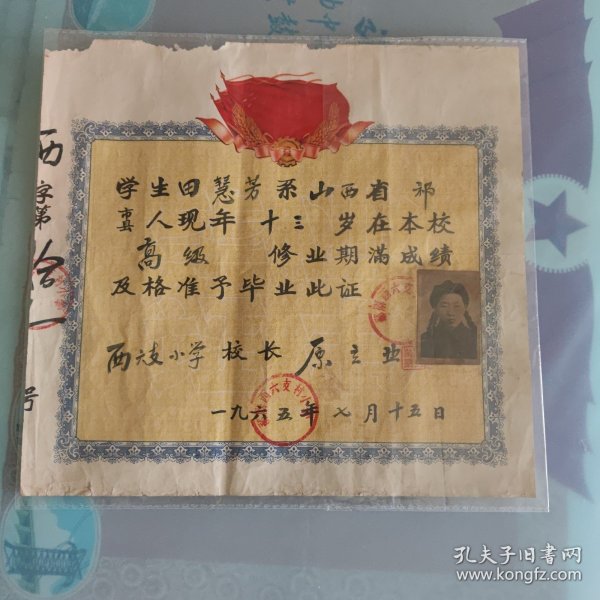 学生田慧芳系山西省祁
县人现年十三岁在本校
高级修业期满成绩
及格准予毕业此证
西六支小学校长原立业
一九六五年七月十五日
西字第拾一号
孔夫子旧书网
www.kongfz.com